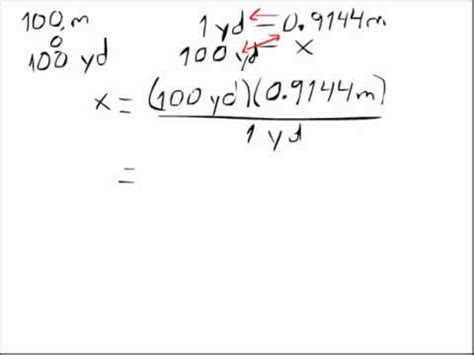 100 m
o
100 yd
1 yd = 0.9144 m
100 yd = x
x = (100 yd)(0.9144 m)
1 yd
=